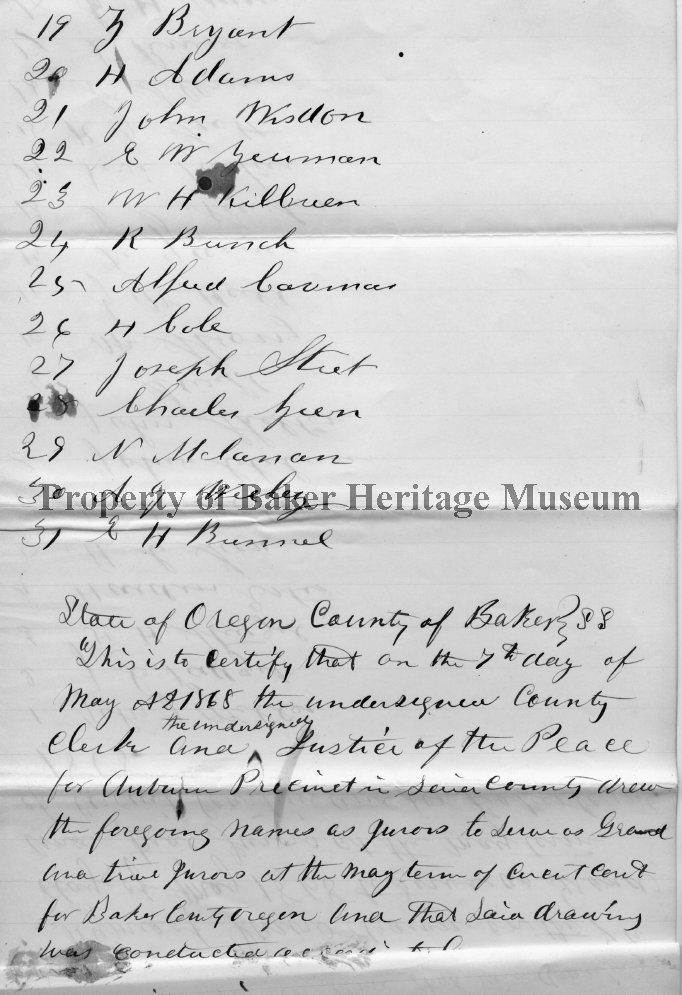 19 Z Bryant
20 H Adams
21 John Wisdon
22 E W Yeuman
23 W H Kilbuen
24 R Bunch
25 Alfred Cavmas
26 H Cole
27 Joseph Street
28 Charles Green
29 N Mclanan
30 A J
Property of Baker Heritage Museum
31 E H Bunnel
State of Oregon County of Baker } SS
This is to certify that on the 7th day of
May AD 1868 the undersigned County
the undersigned
Clerk and ^ Justice of the Peace
for Auburn Precinct in said County drew
the foregoing names as Jurors to serve as Grand
and trial Jurors at the May term of Circuit Court
for Baker County Oregon and that said drawing
was conducted